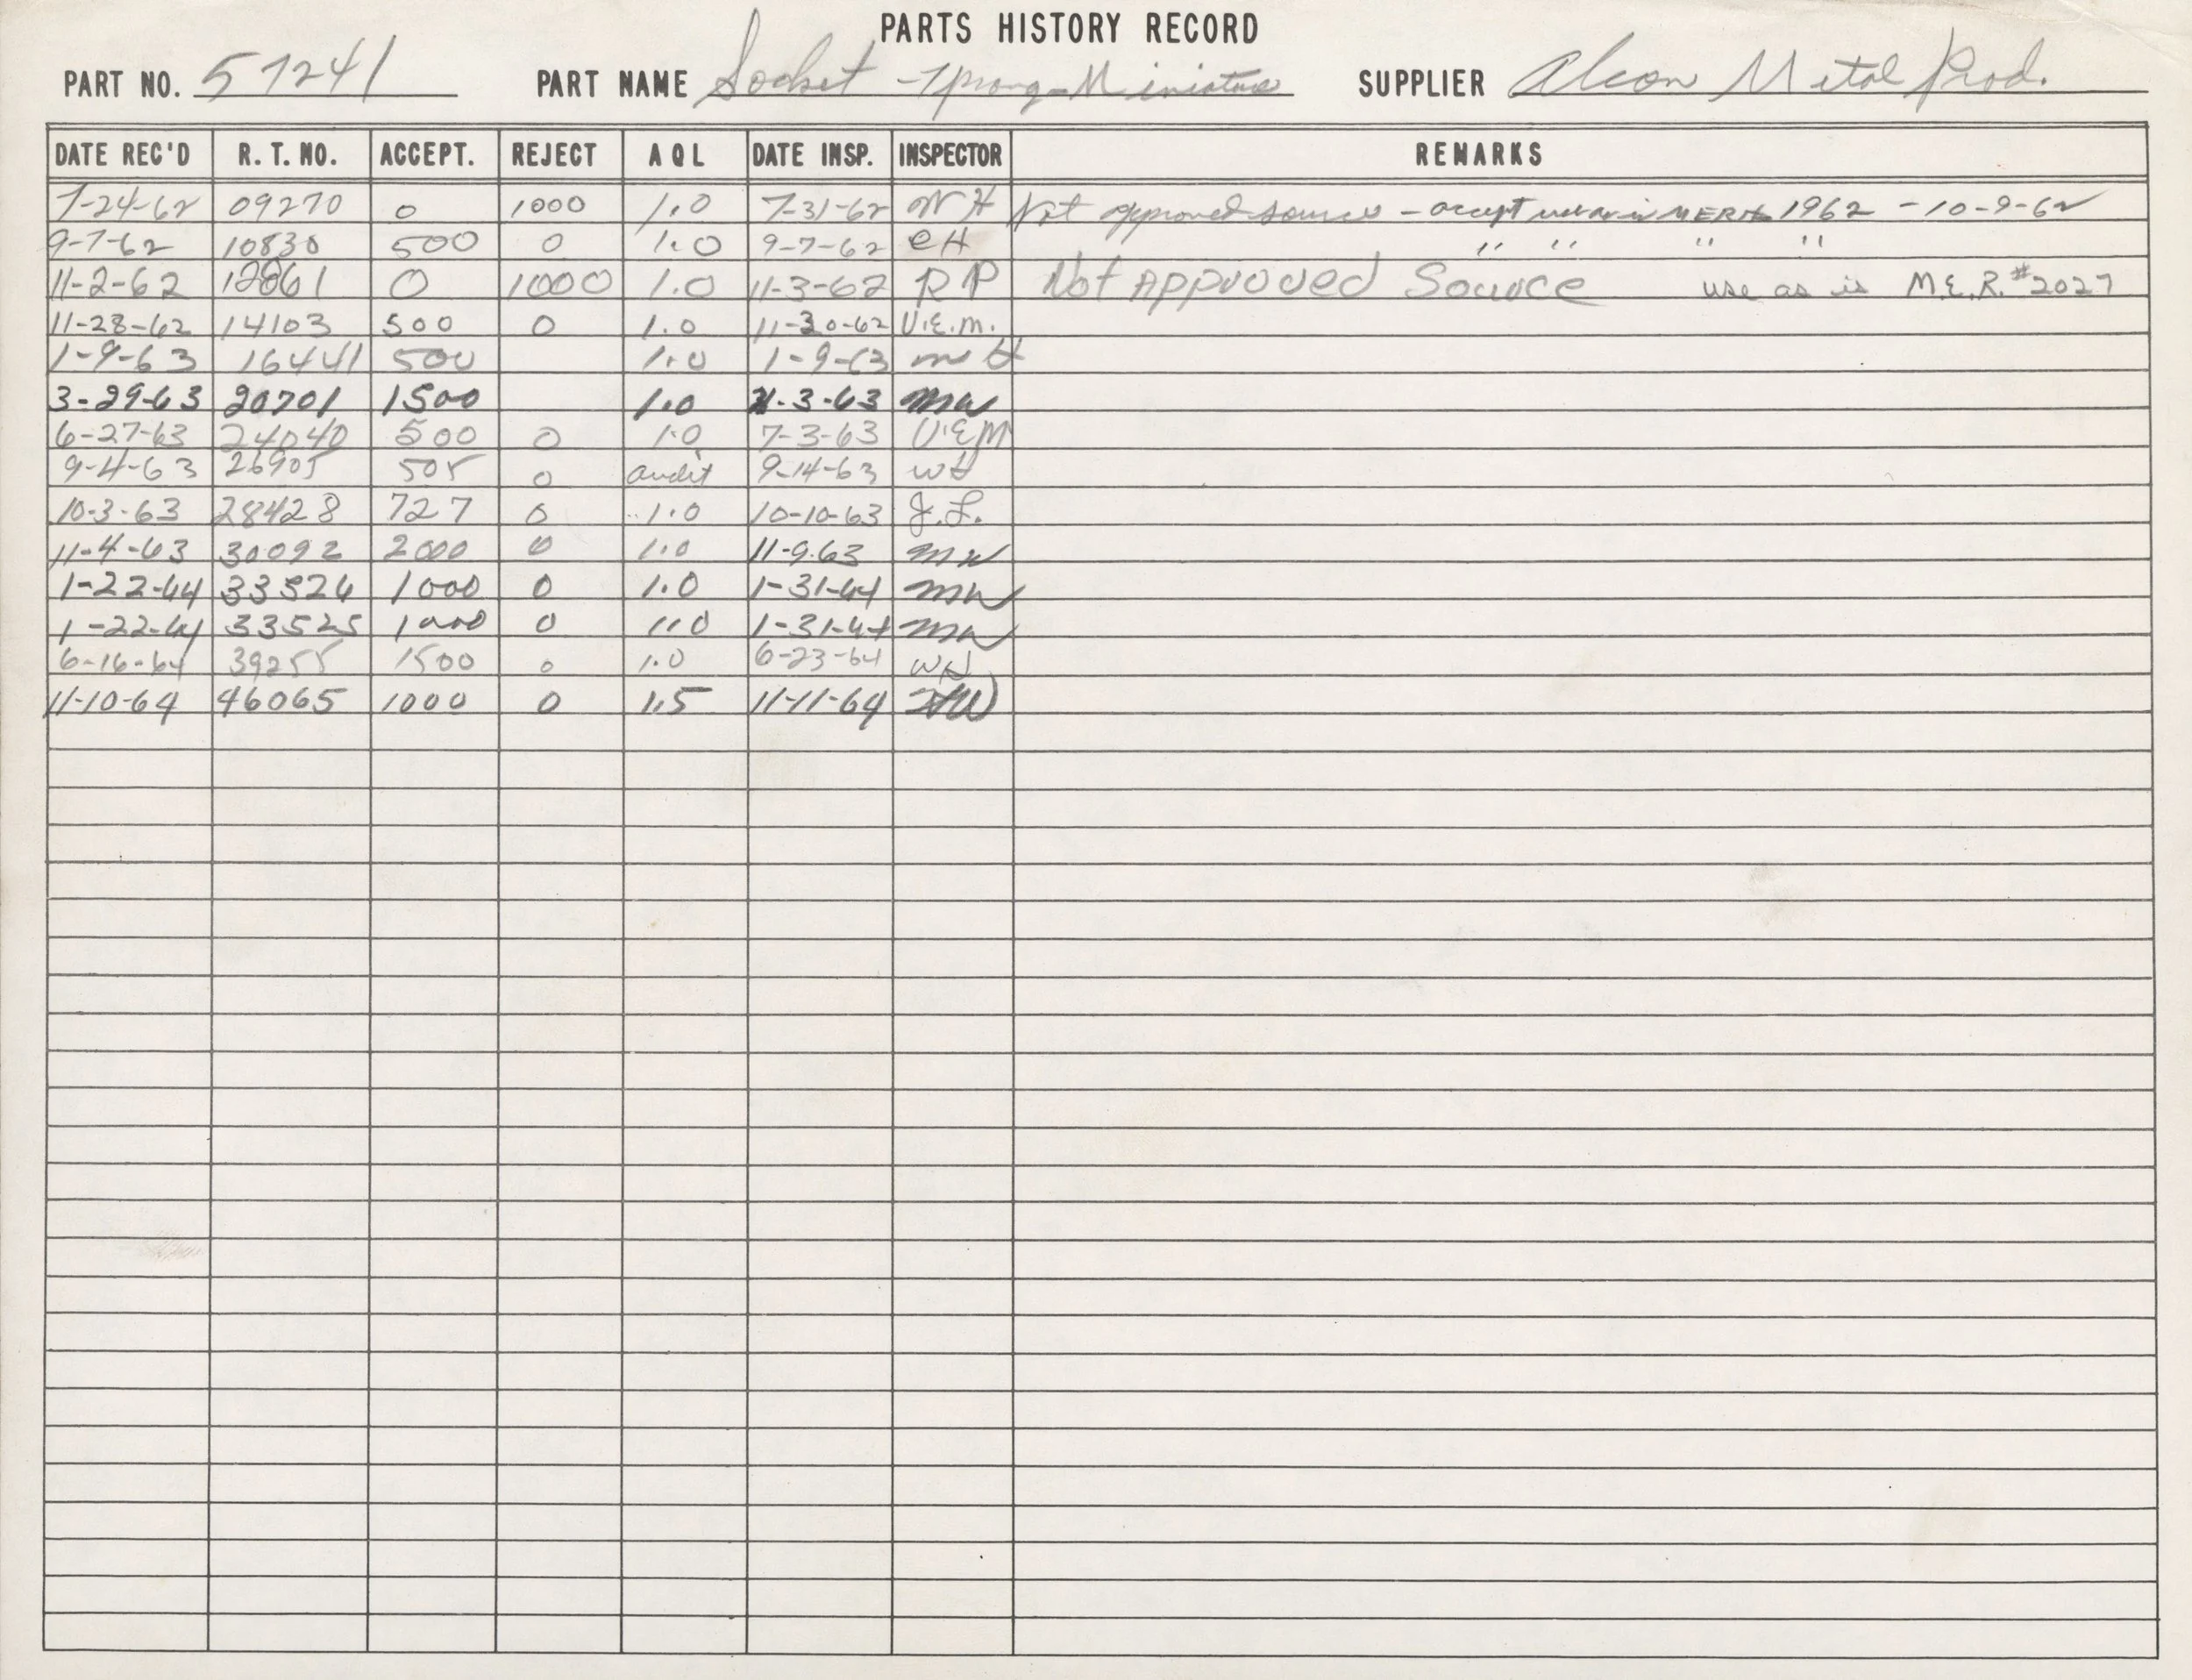 PARTS HISTORY RECORD
PART NO. 57241 PART NAME Socket - 7 prong - Miniature SUPPLIER Alcon Metal Prod.
DATE REC'D R. T. NO. ACCEPT. REJECT AQL DATE INSP. INSPECTOR REMARKS
7-24-62 09270 0 1000 1.0 7-31-62 WH Not approved source - accept use as is MER# 1962 - 10-9-62
9-7-62 10830 500 0 1.0 9-7-62 CH " " " "
11-2-62 12861 0 1000 1.0 11-3-62 RP Not Approved Source use as is M.E.R. #2027
11-28-62 14103 500 0 1.0 11-30-62 V.E.M.
1-9-63 16441 500 1.0 1-9-63
3-29-63 20701 1500 1.0 4-3-63 MW
6-27-63 24040 500 0 1.0 7-3-63 V.E.M
9-4-63 26905 505 0 audit 9-14-63 WH
10-3-63 28428 727 0 1.0 10-10-63 J.L.
11-4-63 30092 2000 0 1.0 11-9-63 MW
1-22-64 33524 1000 0 1.0 1-31-64 MW
1-22-64 33525 1000 0 1.0 1-31-64 MW
6-16-64 39255 1500 0 1.0 6-23-64 WH
11-10-64 46065 1000 0 1.5 11-11-64